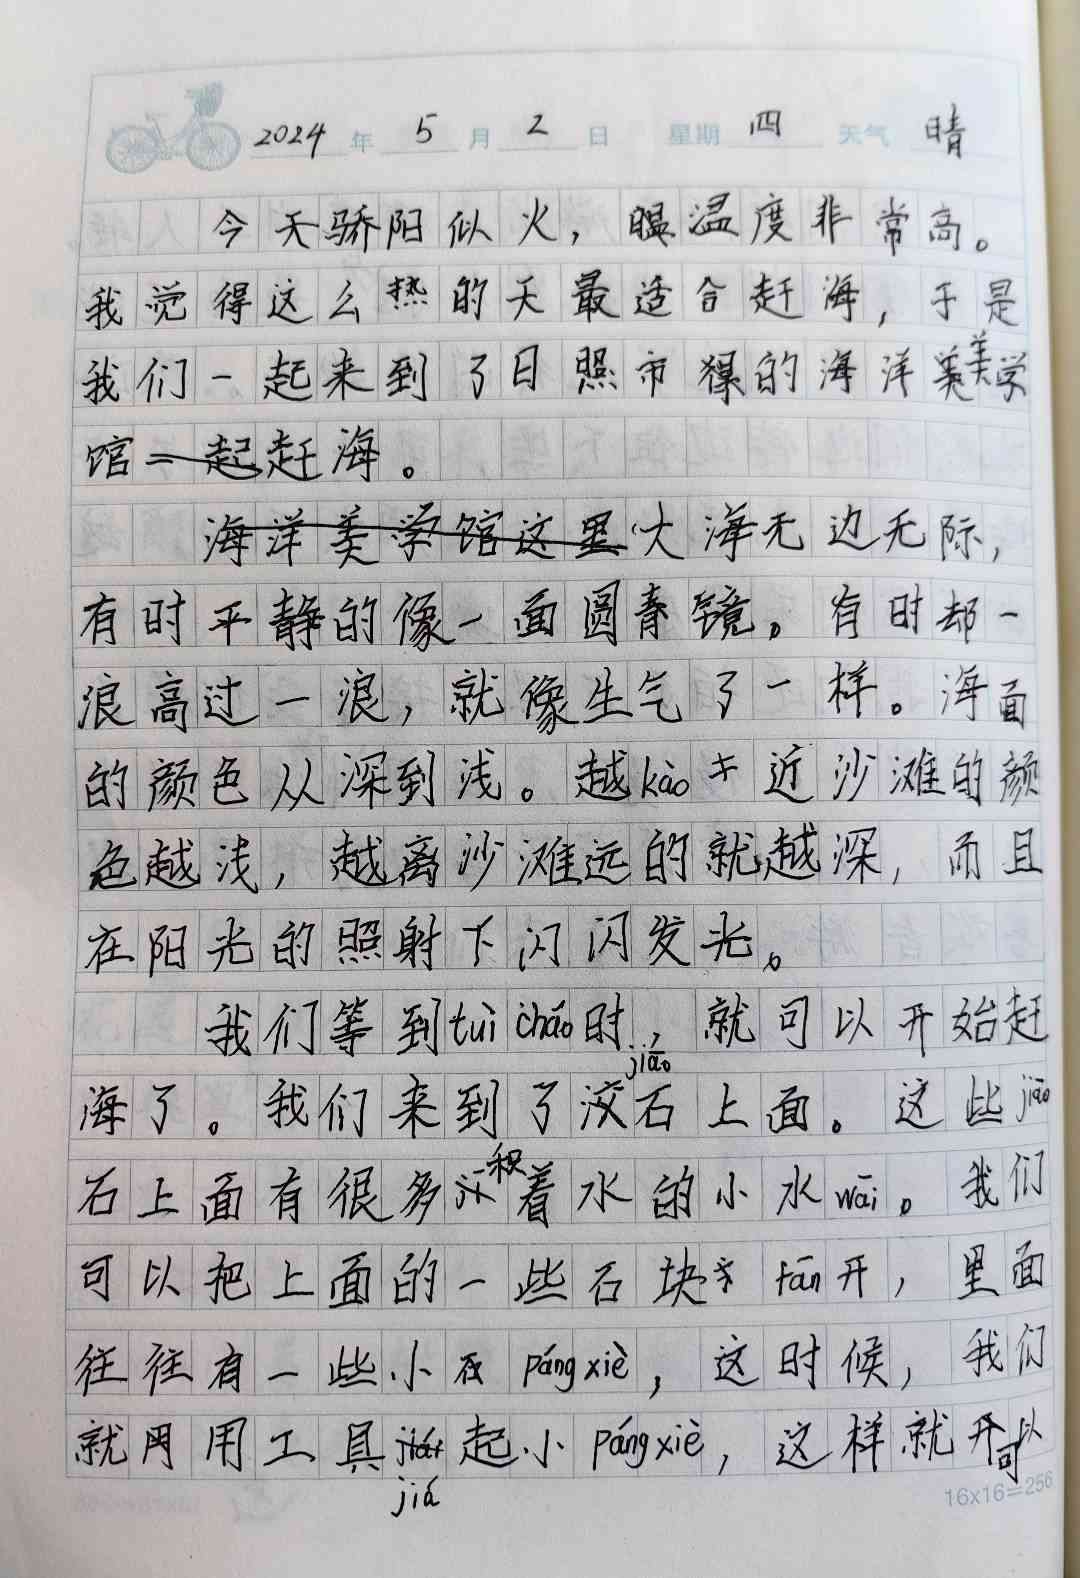 2024年5月2日 星期四 天气 晴
今天骄阳似火，温度非常高。
我觉得这么热的天最适合赶海，于是
我们一起来到了日照市的海洋美学
馆一起赶海。
海洋美学馆这里大海无边无际，
有时平静的像一面圆镜。有时却一
浪高过一浪，就像生气了一样。海面
的颜色从深到浅。越kào近沙滩的颜
色越浅，越离沙滩远的就越深，而且
在阳光的照射下闪闪发光。
我们等到tuì cháo时，就可以开始赶
jiāo
海了。我们来到了石上面。这些jiāo
石上面有很多积着水的小水wāi。我们
可以把上面的一些石块fān开，里面
往往有一些小páng xiè，这时候，我们
就用工具起小páng xiè，这样就可以
jiá
16x16=256